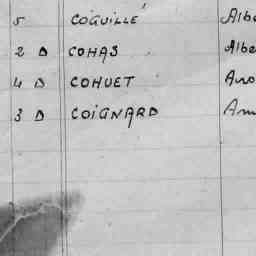 5 COQUILLÉ Albe
2 D COHAS Albe
4 D COHUET
3 D COIGNARD Arm